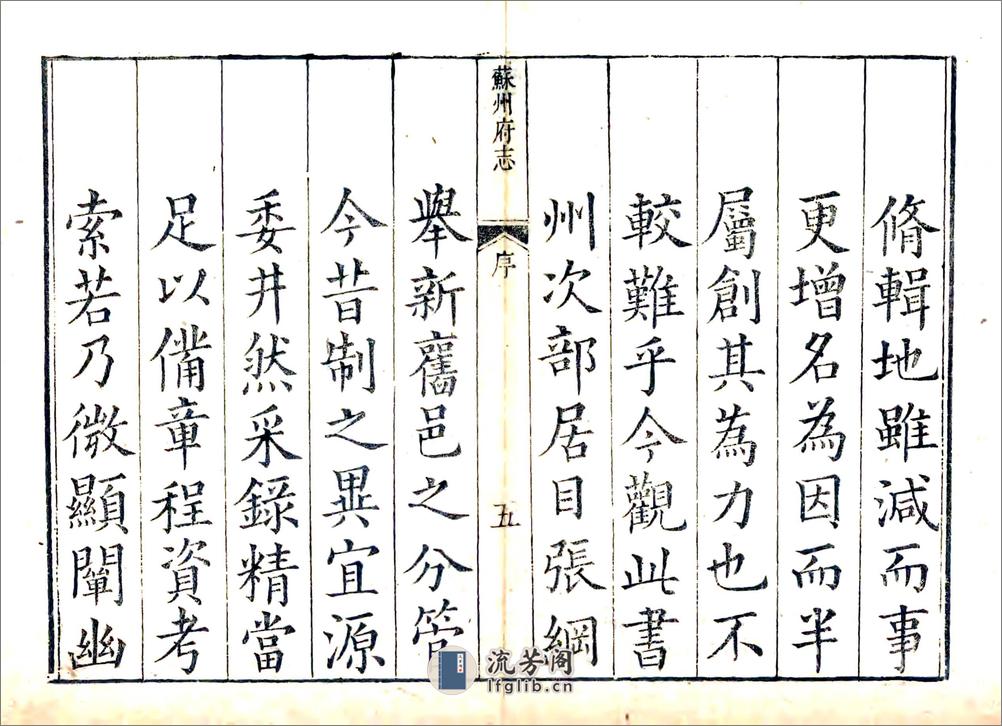 脩輯地雖減而事
更增名為因而半
屬創其為力也不
較難乎今觀此書
州次部居目張綱
蘇州府志
序
五
舉新舊邑之分管
今昔制之異宜源
委井然采錄精當
足以備章程資考
索若乃微顯闡幽
流芳阁
lfglib.cn